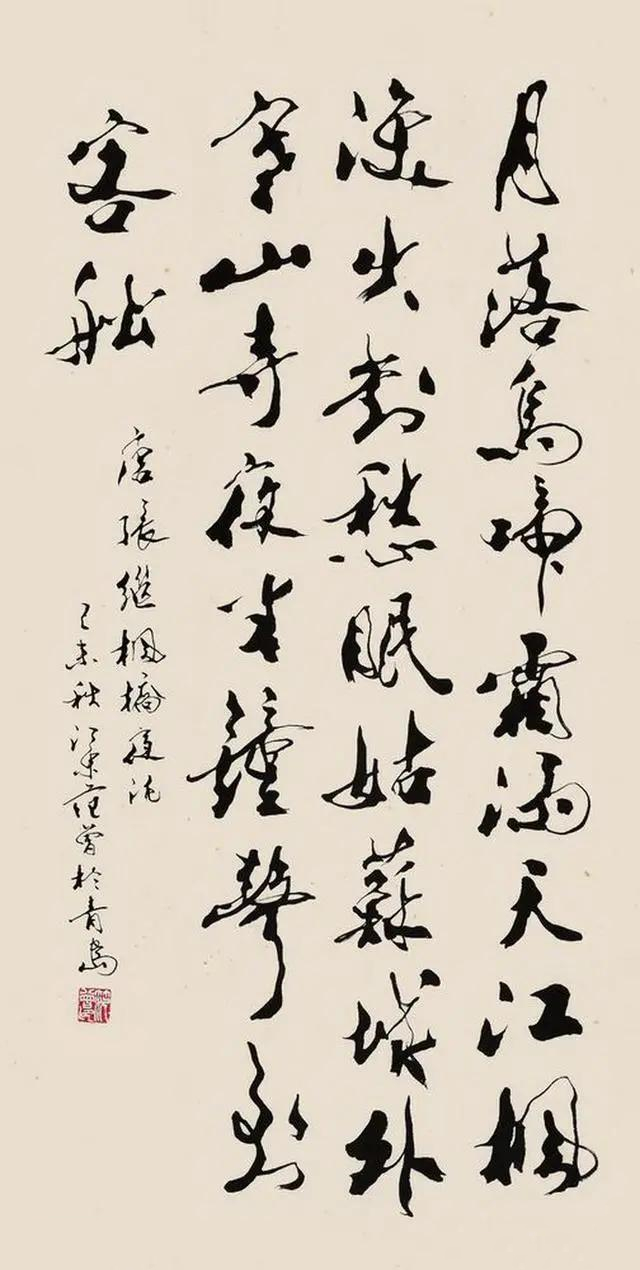 月落烏啼霜滿天江楓
漁火對愁眠姑蘇城外
寒山寺夜半鐘聲到
客船
唐張繼楓橋夜泊
己未秋江東范曾於青島